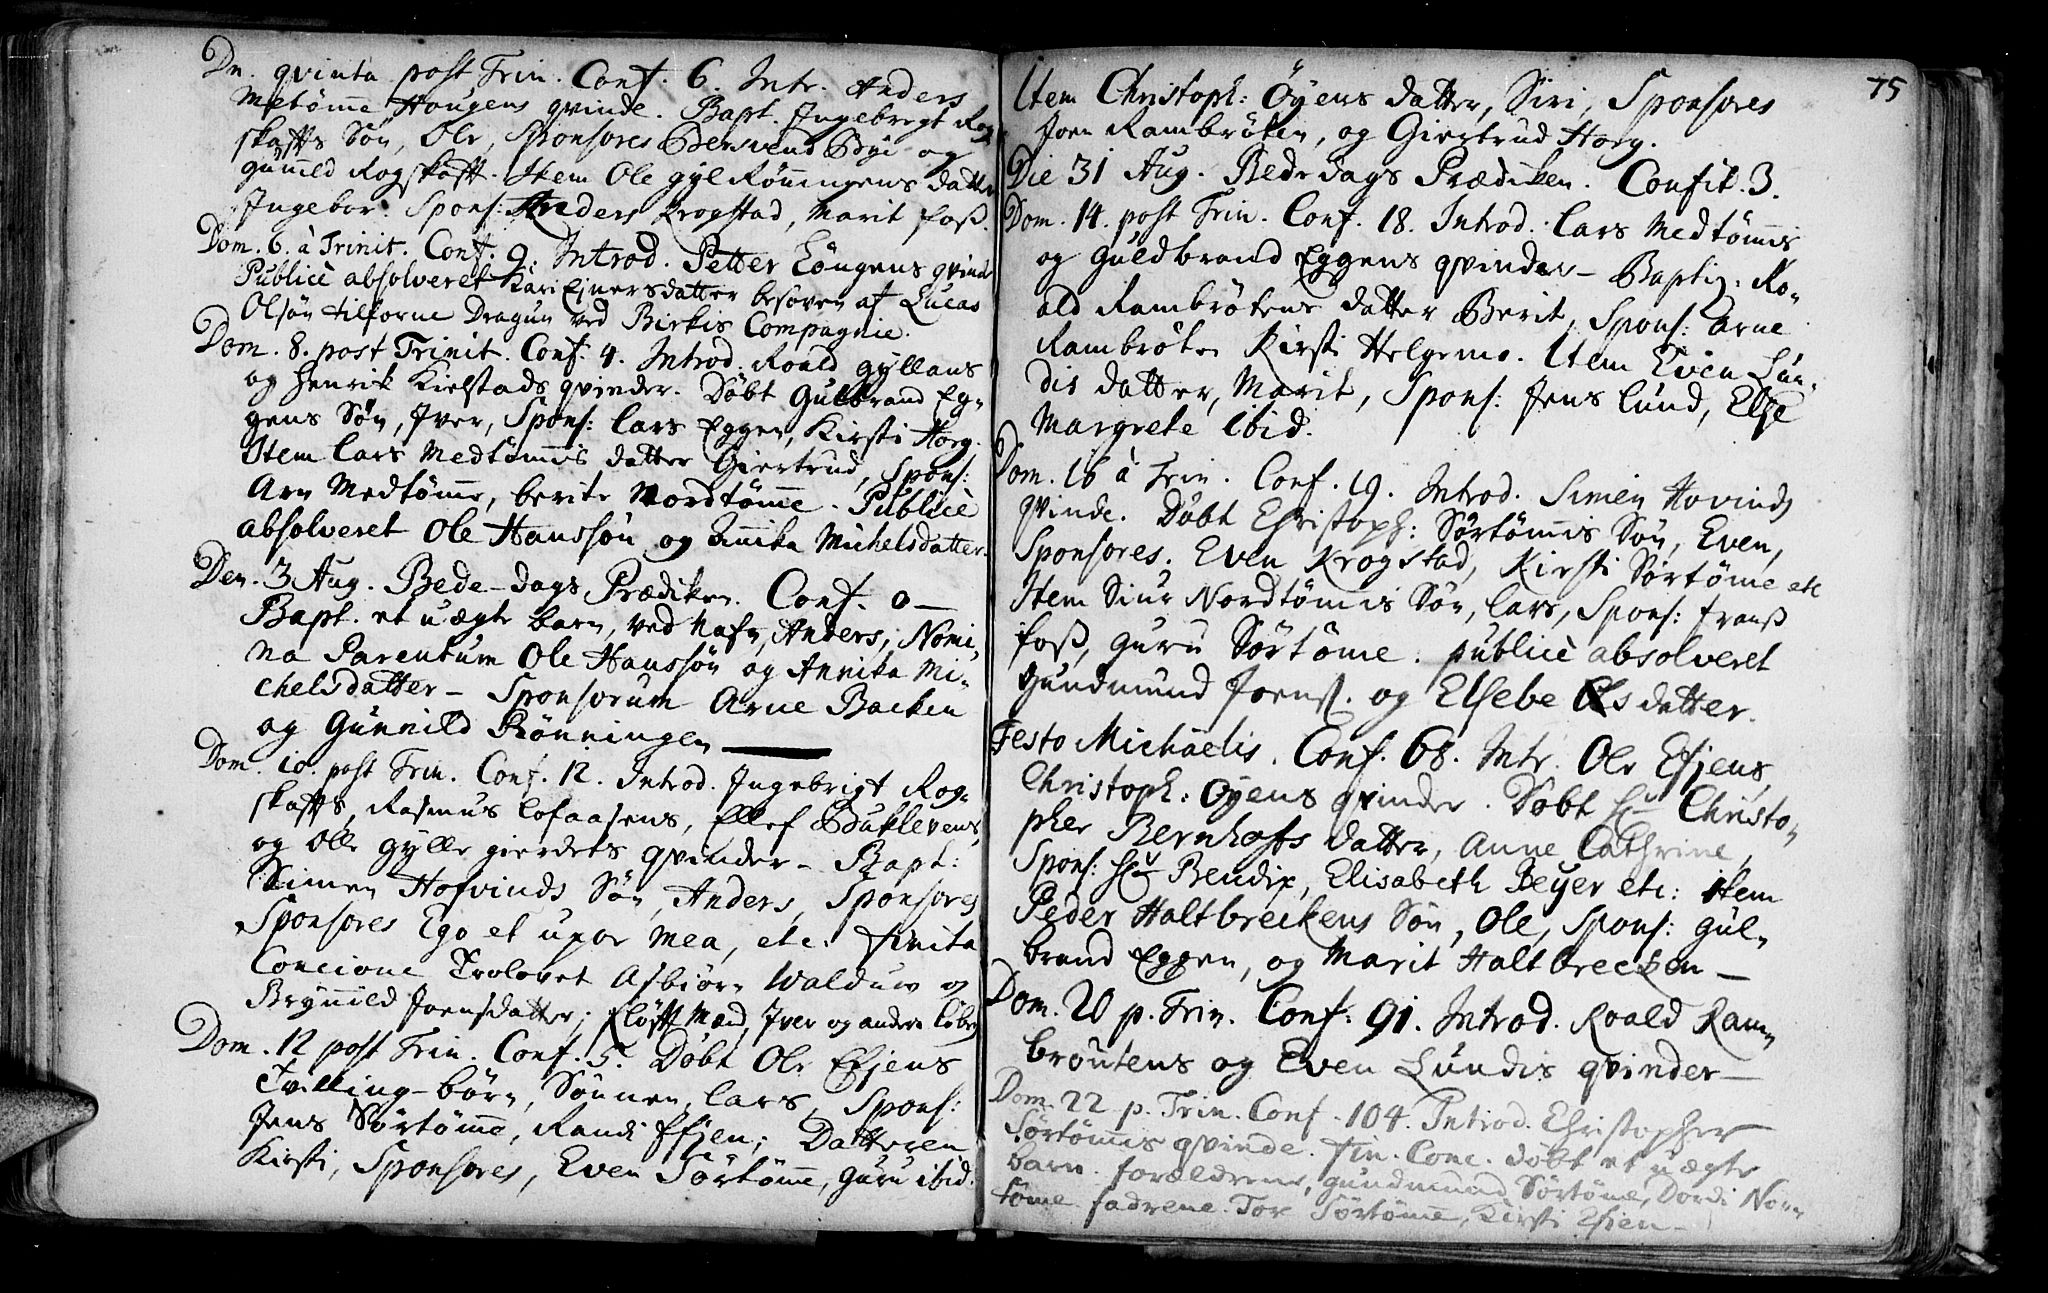 Dn. qvinta post Trin. Conf. 6. Intr. Anders
Metömme Hougens qvinde. Bapt. Ingebregt Rog
skaffts Sön, Ole, Sponsores Bersvend Byé og
Guñild Rogskaft. Item Ole gylRönningens datter
Ingebor. Spons: Anders Krogstad, Marit foss.
Dom. 6. à Trinit. Conf. 9. Introd. Petter Löngens qvinde
Publicè absolveret Kari Ejnersdatter besoven af Lucas
Olsön tilforne Dragun ved Birkis Compagnie.
Dom. 8. post Trinit. Conf. 4. Introd. Roald gyllans
og Henrik Kielstads qvinder. Döbt Gulbrand Eg„
gens Sön, Iver, Spons: Lars Eggen, Kirsti Horg.
Item Lars Medtömmis datter Giertrud, Spons:
Arn Medtömme, berite Nordtömme. Publicè
absolveret Ole Hanssön og Annika Michelsdatter.
Den. 3 Aug. Bede-dags Prædiken. Conf. 0 —
Bapt. et uægte barn, ved Nafn, Anders, Nomi„
na Parentum Ole Hanssön og Annika Mi„
chelsdatter — Sponsorum Arne Backen
og Gunnild Rönningen —
Dom. 10. post Trin. Conf. 12. Introd. Ingebrigt Rog„
skaffts, Rasmus Lofaasens, Ellef Buklevens
og Olle gylle gierdets qvinder — Bapt:
Simen Hofvinds Sön, Anders, Sponsores
Sponsores Ego et uxor mea, etc. finita
Concione Trolovet Asbiörn Walduw og
Bryñild Joensdatter; Iver og andre
Dom. 12 post Trin. Conf. 5. Döbt Ole Efjens
Tvilling-börn, Sönnen, Lars, Spons:
Jens Sörtömme, Randi Efjen; Datteren
Kirsti, Sponsores, Even Sörtömme, Guru ibid.
75
Item Christoph: Öyens datter, Siri, Sponsores
Joen Rambröten, og Giertrud Horg.
Die 31 Aug. Bededags Prædiken. Confit. 3.
Dom. 14. post Trin. Conf. 18. Introd. Lars Medtömmis
og Guldbrand Eggens qvinder — Baptiz. Ro„
ald Rambrötens datter Berit, Spons: Arne
Rambröten Kirsti Helgemo. Item Even Lun„
dis datter, Marit, Spons: Jens Lund, Else
Margrete ibid.
Dom. 16 à Trin. Conf. 19. Introd. Simen Hovinds
qvinde. Döbt Christoph: Sörtömmis Sön, Even,
Sponsores. Even Krogstad, Kirsti Sörtöme etc
Item Siur Nordtömis Sön, Lars, Spons: Franss
foss, Guru Sörtöme. publicè absolveret
Gundmund Joens. og Elsebe Olsdatter.
Festo Michaelis. Conf. 68. Intr. Ole Efjens,
Christoph: Öyens qvinder. Döbt Hr Christo„
pher Bernhofts datter, Anne Cathrine,
Spons: Hr Bendix, Elisabeth Beyer etc: item
Peder Haltbreckens Sön, Ole, Spons: Gul„
brand Eggen, og Marit Haltbrecken —
Dom. 20 p. Trin. Conf. 91. Introd. Roald Ram„
broutens og Even Lundis qvinder —
Dom. 22 p. Trin. Conf. 104. Introd. Christopher
Sörtömmis qvinde. Fin. Conc. döbt et uægte
barn. forældrene, Gundmund Sörtöme, Dordi Nor„
töme fadrene. Tore Sörtömme, Kirsti Efien —